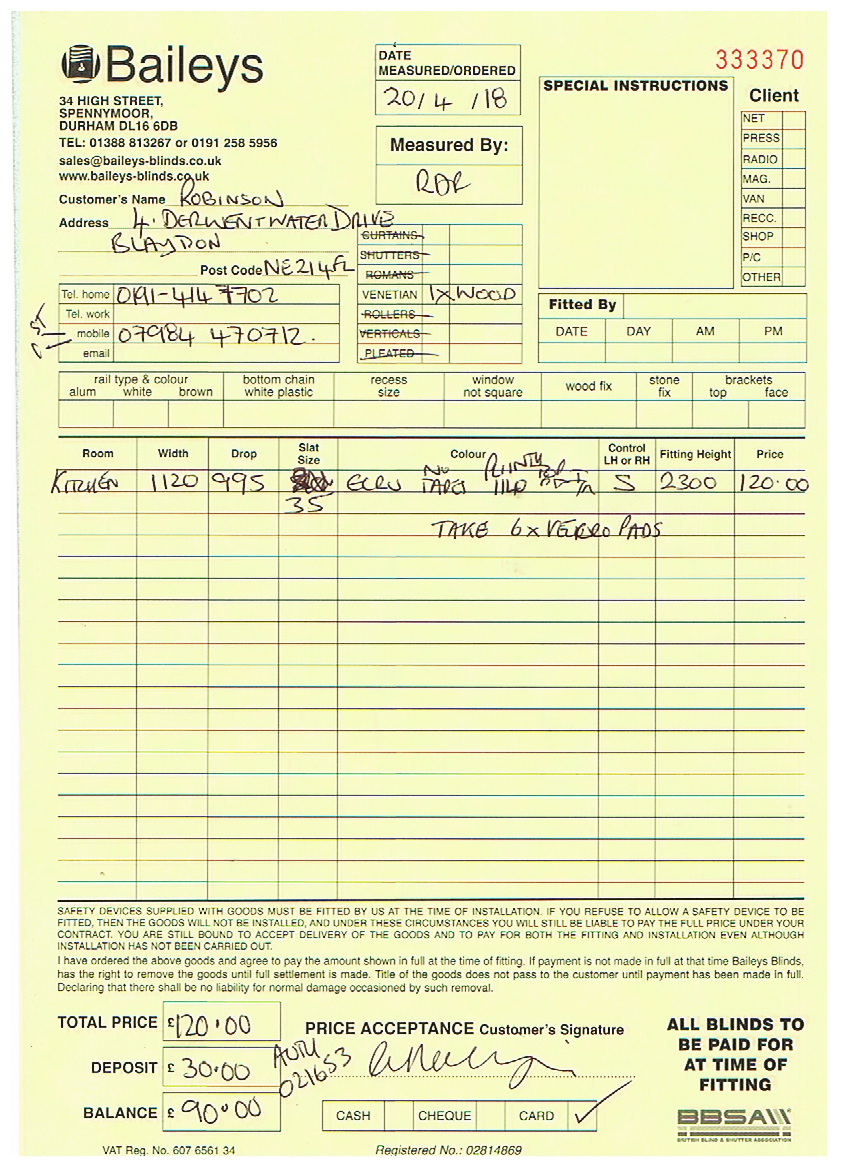 Baileys
34 HIGH STREET,
SPENNYMOOR,
DURHAM DL16 6DB
TEL: 01388 813267 or 0191 258 5956
sales@baileys-blinds.co.uk
www.baileys-blinds.co.uk
DATE
MEASURED/ORDERED
20/4/18
Measured By:
RDR
333370
SPECIAL INSTRUCTIONS
Client
NET
PRESS
RADIO
MAG.
VAN
RECC.
SHOP
P/C
OTHER
Customer's Name ROBINSON
Address 4. DERWENTWATER DRIVE
BLAYDON
Post Code NE21 4FL
Tel. home 0191-414 7702
Tel. work
mobile 07984 470712.
email
CURTAINS
SHUTTERS
ROMANS
VENETIAN 1XWOOD
ROLLERS
VERTICALS
PLEATED
Fitted By
DATE DAY AM PM
rail type & colour
alum white brown
bottom chain
white plastic
recess
size
window
not square
wood fix
stone
fix
brackets
top face
Room Width Drop Slat Size Colour Control LH or RH Fitting Height Price
KITCHEN 1120 995 35 ECRU NO TAPES 1140 S 2300 120.00
TAKE 6x PADS
SAFETY DEVICES SUPPLIED WITH GOODS MUST BE FITTED BY US AT THE TIME OF INSTALLATION. IF YOU REFUSE TO ALLOW A SAFETY DEVICE TO BE
FITTED, THEN THE GOODS WILL NOT BE INSTALLED, AND UNDER THESE CIRCUMSTANCES YOU WILL STILL BE LIABLE TO PAY THE FULL PRICE UNDER YOUR
CONTRACT. YOU ARE STILL BOUND TO ACCEPT DELIVERY OF THE GOODS AND TO PAY FOR BOTH THE FITTING AND INSTALLATION EVEN ALTHOUGH
INSTALLATION HAS NOT BEEN CARRIED OUT.
I have ordered the above goods and agree to pay the amount shown in full at the time of fitting. If payment is not made in full at that time Baileys Blinds,
has the right to remove the goods until full settlement is made. Title of the goods does not pass to the customer until payment has been made in full.
Declaring that there shall be no liability for normal damage occasioned by such removal.
TOTAL PRICE £120.00
DEPOSIT £30.00
BALANCE £90.00
AUTH
021653
PRICE ACCEPTANCE Customer's Signature
CASH CHEQUE CARD ✓
ALL BLINDS TO
BE PAID FOR
AT TIME OF
FITTING
BBSA
BRITISH BLIND & SHUTTER ASSOCIATION
VAT Reg. No. 607 6561 34
Registered No.: 02814869